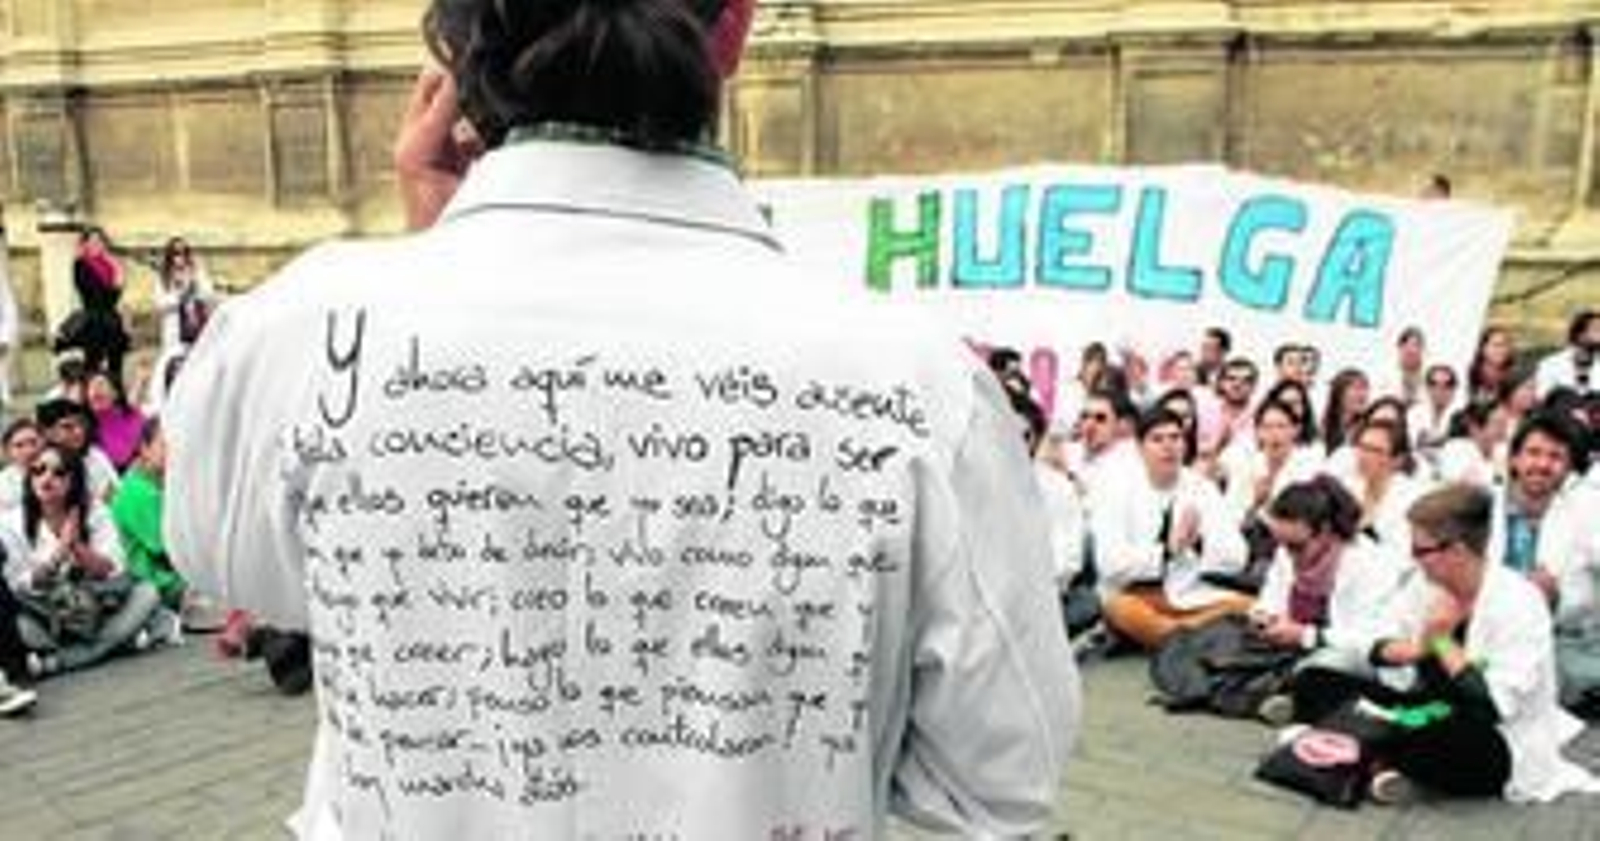 HUELGA
Y ahora aquí me veis ausente
toda conciencia, vivo para ser
que ellos quieren que yo sea; digo lo que
que yo he de decir; vivo como digan que
tengo que vivir; creo lo que creen que y
que creer; hago lo que ellos digan q
hacer; pienso lo que piensan que y
de pensar... ¡ya os controlaron! ya
hay muchos